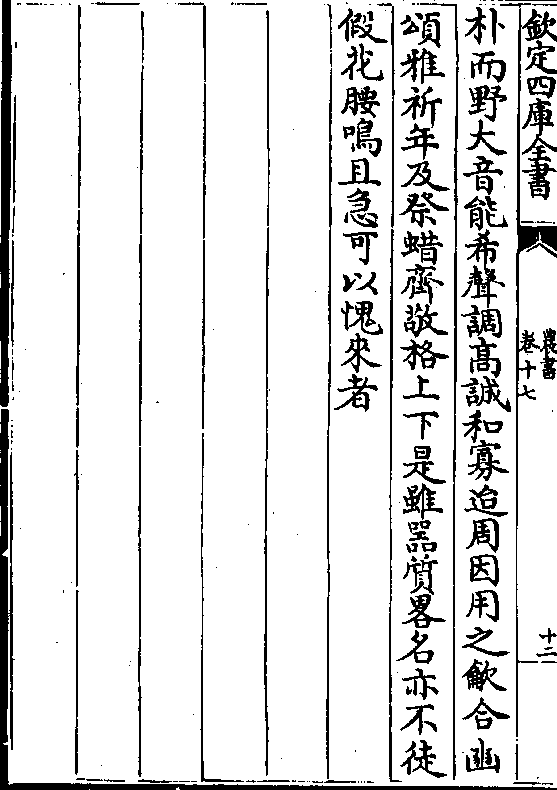 欽定四庫全書
農書
卷十七
十二
朴而野大音能希聲調髙誠和寡迨周因用之龡合豳
頌雅祈年及祭蜡齊敬格上下是雖器質畧名亦不徒
假花腰鳴且急可以愧來者